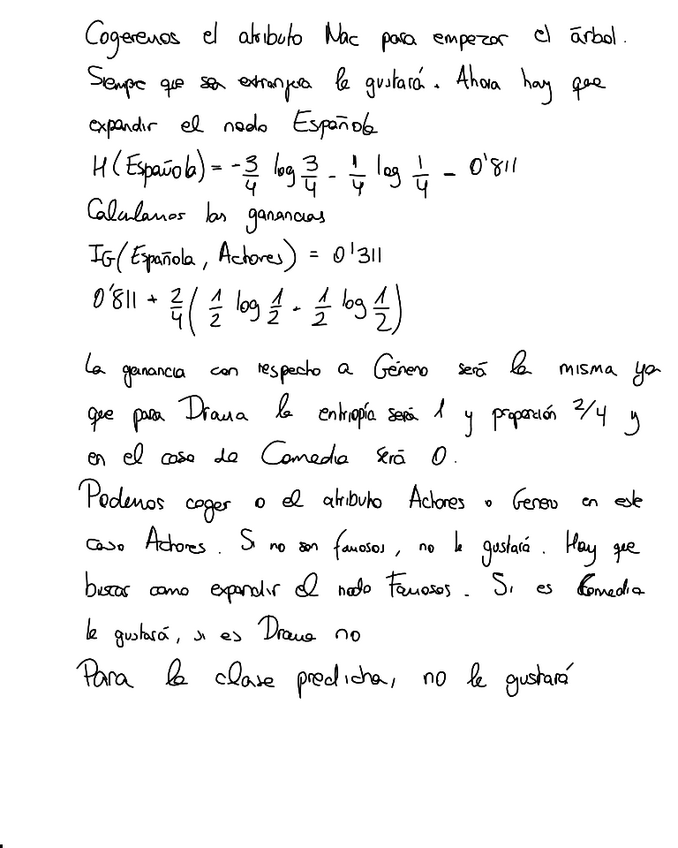 Cogeremos el atributo Nac para empezar el árbol.
Siempe que sea extranjera le gustará. Ahora hay que
expandir el nodo Española
H(Española) = -3/4 log 3/4 - 1/4 log 1/4 - 0'811
Calculamos las ganancias
IG(Española, Actores) = 0'311
0'811 + 2/4 ( 1/2 log 1/2 - 1/2 log 1/2 )
La ganancia con respecto a Género será la misma ya
que para Drama la entropía será 1 y proporción 2/4 y
en el caso de Comedia será 0.
Podemos coger o el atributo Actores o Genero en este
caso Actores. Si no son famosos, no le gustará. Hay que
buscar como expandir el nodo Famosos. Si es Comedia
le gustará, si es Drama no
Para la clase predicha, no le gustará